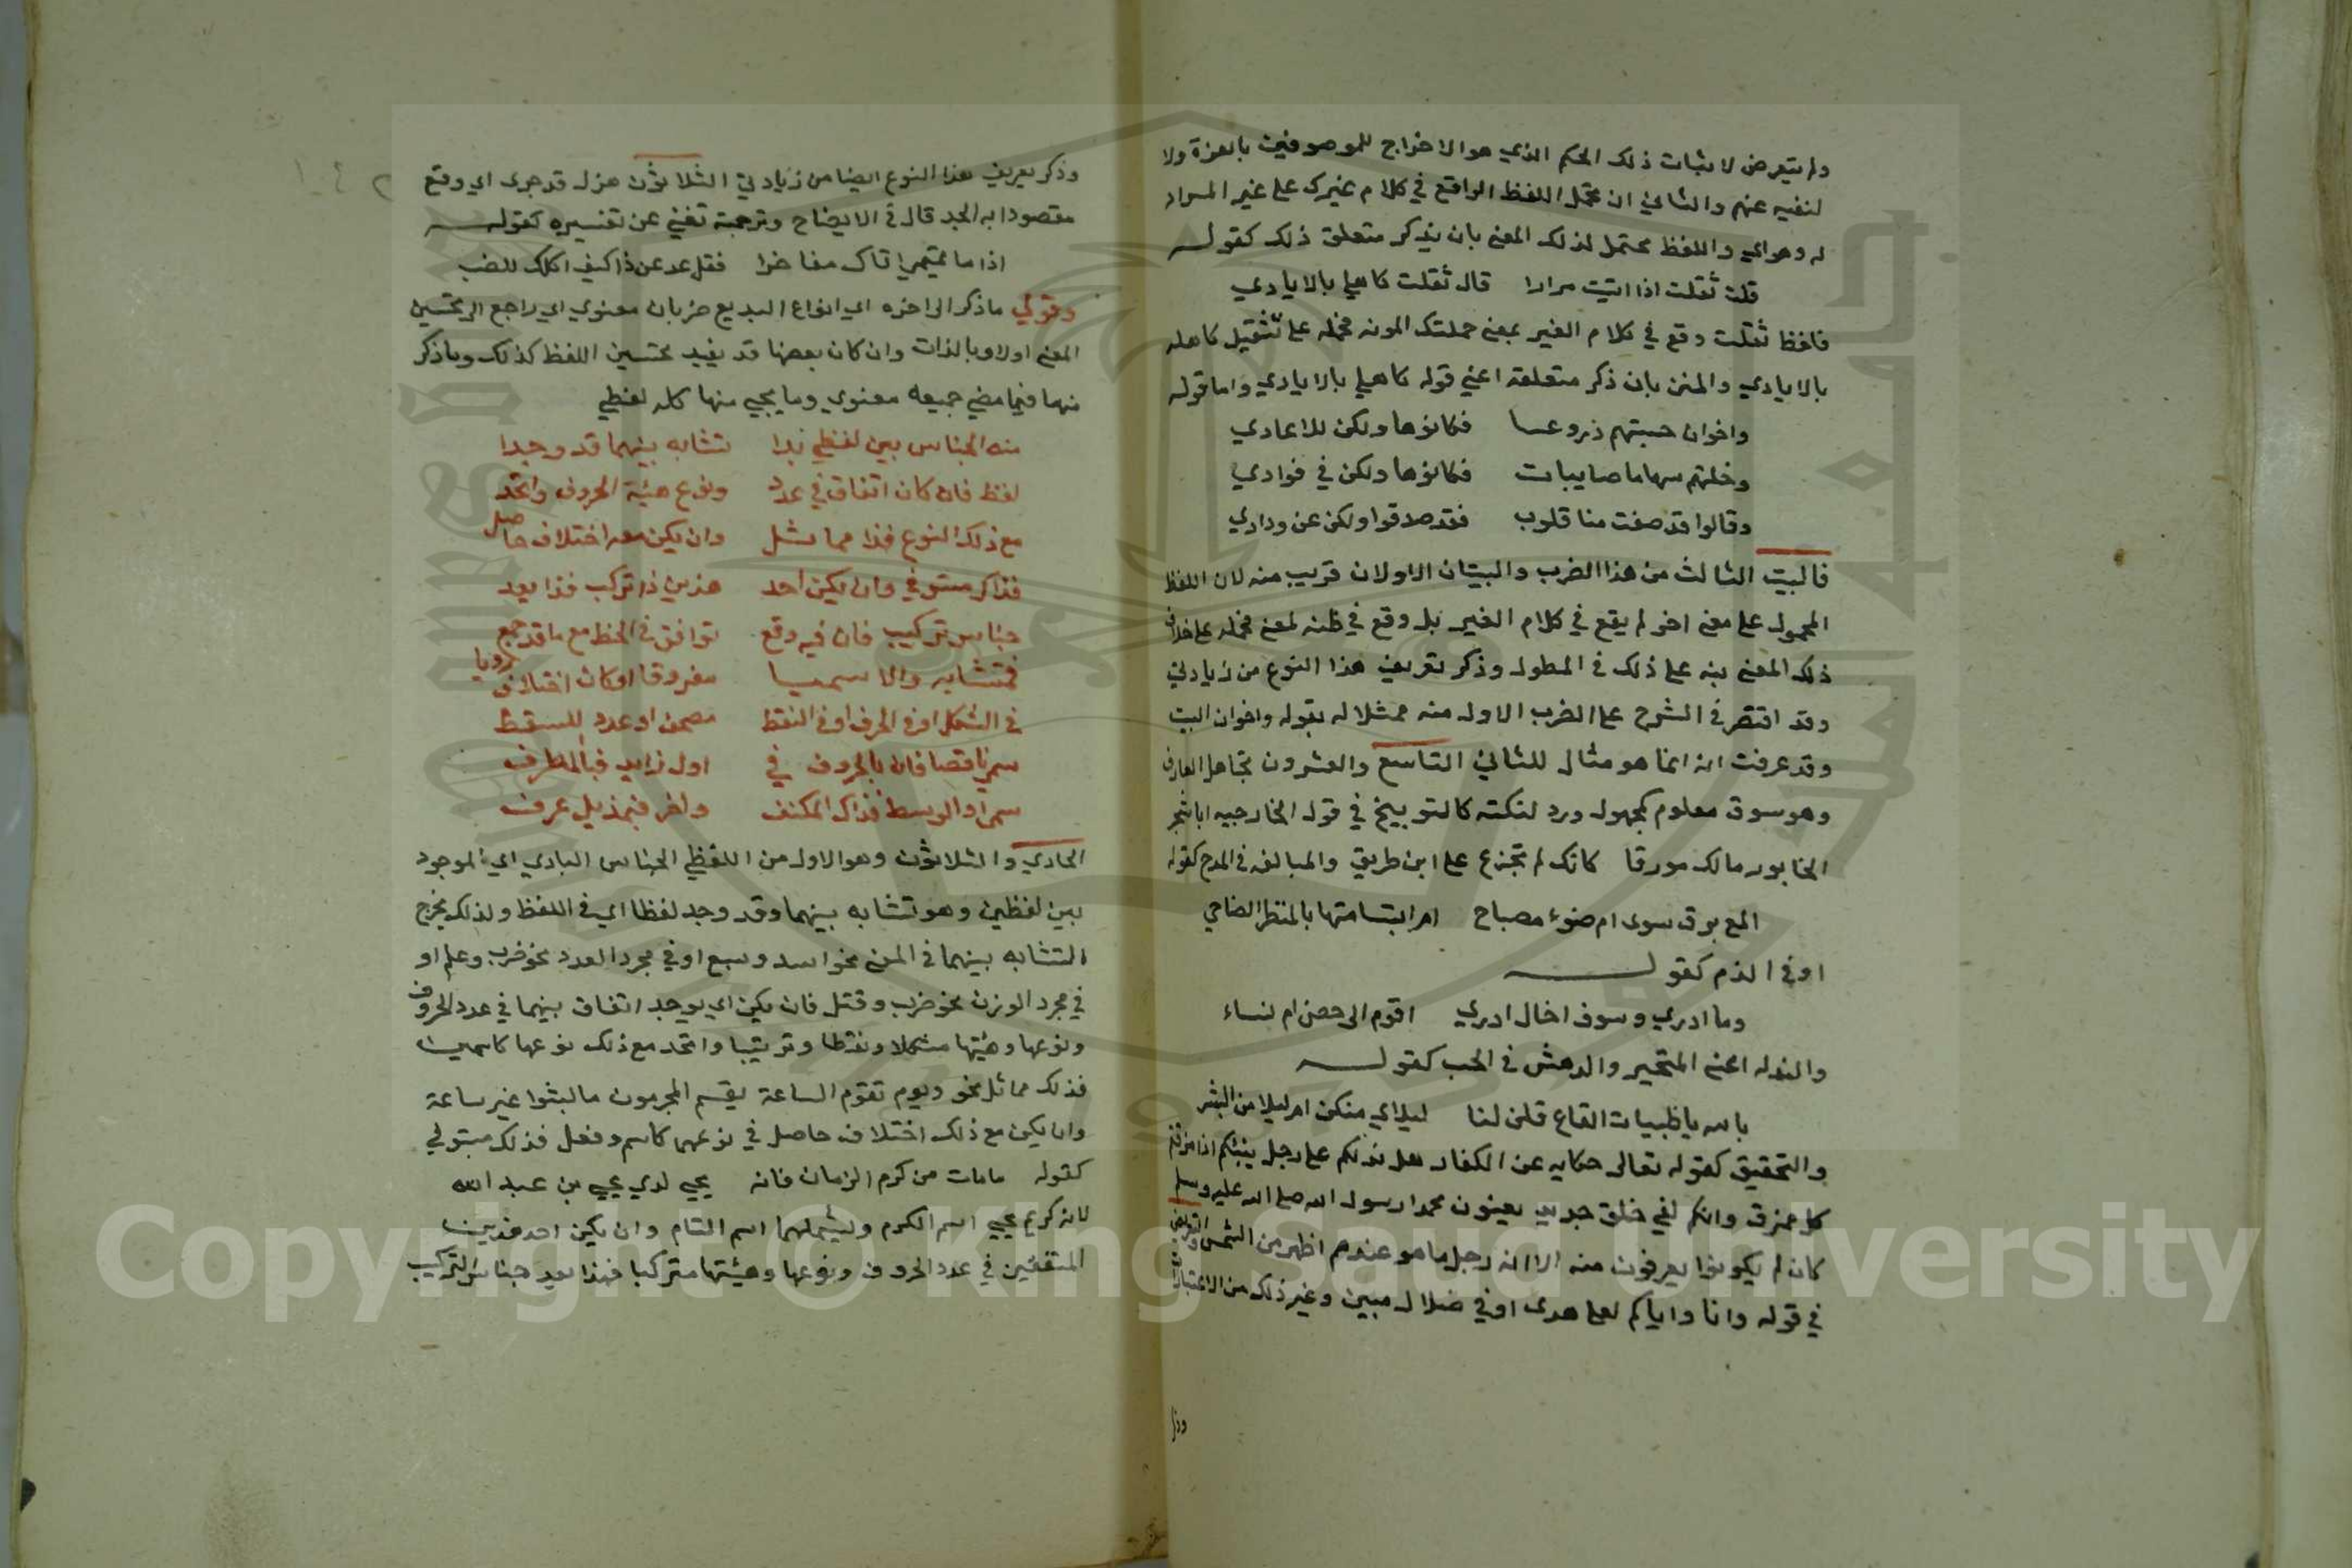 ولم يتعرض لاثبات ذلك الحكم الذي هو الاخراج للموصوفين بالعزة ولا
لنفيه عنهم والثاني ان تحمل اللفظ الواقع في كلام غيرك على غير المراد
له وهو اي واللفظ محتمل لذلك المعنى بان يذكر متعلق ذلك كقوله
قلت ثقلت اذا اتيت مرارا قال ثقلت كاهلي بالايادي
فلفظ ثقلت وقع في كلام الغير بمعنى حملتك المونه فحمله على تثقيل كاهله
بالايادي والمنن بان ذكر متعلقه اعني قوله كاهلي بالايادي واما قوله
واخوان حسبتهم دروعا فكانوها ولكن للاعادي
وخلتهم سهاما صايبات فكانوها ولكن في فوادي
وقالوا قد صفت منا قلوب فقد صدقوا ولكن عن ودادي
فالبيت الثالث من هذا الضرب والبيتان الاولان قريب منه لان اللفظ
المحمول على معنى اخر لم يقع في كلام الغير بل وقع في ظنه لمعنى فحمله على خلاف
ذلك المعنى نبه على ذلك في المطول وذكر تعريف هذا النوع من زيادتي
وقد اقتصر في الشرح على الضرب الاول منه ممثلا له بقوله واخوان البيت
وقد عرفت انه انما هو مثال للثاني التاسع والعشرون تجاهل العارف
وهو سوق معلوم كمجهول ورد لنكته كالتوبيخ في قول الخارجيه ايا شجر
الخابور مالك مورقا كانك لم تجزع على ابن طريق والمبالغه في المدح كقوله
المع برق سرى ام ضوء مصباح ام ابتسامتها بالمنظر الضاحي
او في الذم كقوله
وما ادري وسوف اخال ادري اقوم ال حصن ام نساء
والتوله اعني التحير والدهش في الحب كقوله
بالله يا ظبيات القاع قلن لنا ليلاي منكن ام ليلا من البشر
والتحقيق كقوله تعالى حكايه عن الكفار هل ندلكم على رجل ينبئكم اذا مزقتم
كل ممزق وانكم لفي خلق جديد يعنون محمدا رسول الله صلى الله عليه وسلم
كان لم يكونوا يعرفون منه الا انه رجل ما هو عندهم اظهر من الشمس والتعريض
في قوله وانا واياكم لعلى هدى او في ضلال مبين وغير ذلك من الاعتبارات
وذكر
وذكر تعريف هذا النوع ايضا من زيادتي الثلاثون هزل قد جرى اي وقع
مقصودا به الجد قال في الايضاح وترجمته تغني عن تفسيره كقوله
اذا ما تميمي اتاك مفاخرا فقل عد عن ذا كيف اكلك للضب
وقولي ما ذكر الى اخره اي انواع البديع ضربان معنوي اي راجع الى تحسين
المعنى اولا وبالذات وان كان بعضها قد يفيد تحسين اللفظ كذلك وما ذكر
منها فيما مضى جميعه معنوي وما يجي منها كله لفظي
منه الجناس بين لفظي بدا تشابه بينهما قد وجدا
لفظ فان كان اتفاق في عدد ونوع هيئة الحروف واتحد
مع ذلك النوع فذا مماثل وان يكن معه اختلاف حاصل
فذاك مستوفي وان يكن احد هذين ذا تركب فذا يعد
جناس تركيب فان فيه وقع توافق في الخط مع ما قد جمع
فمتشابه والا سميا مفروقا او كان اختلاف رويا
في الشكل او في الحرف او في النقط مصحف او عدد للسقط
سمي ناقصا فان بالحروف في اول زايد فبالمطرف
سمي او الوسط فذاك المكتنف واخر فبمذيل عرف
الحادي والثلاثون وهو الاول من اللفظي الجناس البادي اي الموجود
بين لفظين وهو تشابه بينهما وقد وجد لفظا اي في اللفظ ولذلك يخرج
التشابه بينهما في المعنى نحو اسد وسبع او في مجرد العدد نحو ضرب وعلم او
في مجرد الوزن نحو ضرب وقتل فان يكن اي يوجد اتفاق بينهما في عدد الحروف
ونوعها وهيئتها شكلا ونقطا وترتيبا واتحد مع ذلك نوعها كاسمين
فذلك مماثل نحو ويوم تقوم الساعة يقسم المجرمون ما لبثوا غير ساعة
وان يكن مع ذلك اختلاف حاصل في نوعهما كاسم وفعل فذلك مستوفي
كقوله ما مات من كرم الزمان فانه يحيى لدي يحيى بن عبد الله
لانه كريم يحيي اسم الكرم ويشملهما اسم التام وان يكن احد هذين
المتفقين في عدد الحروف ونوعها وهيئتها متركبا فهذا يعد جناس التركيب
Copyright © King Saud University